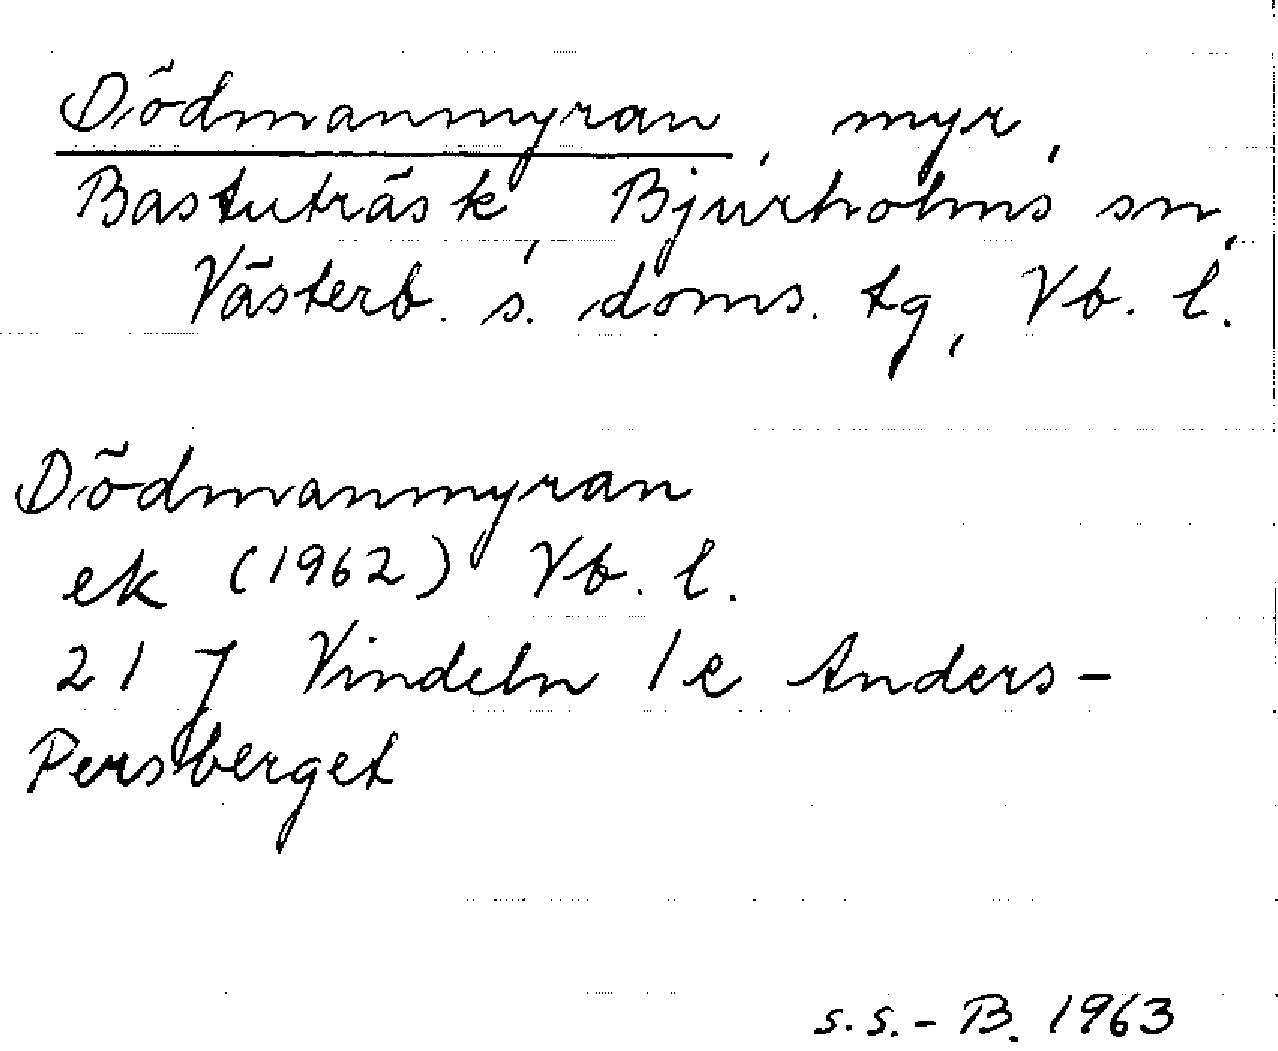 Dödmanmyran, myr,
Bastuträsk, Bjurholms sn,
Västerb. s. doms. tg, Vb. l.
Dödmanmyran
ek (1962) Vb. l.
21 J Vindeln 1 e Anders-
Persberget
s.s.-B. 1963